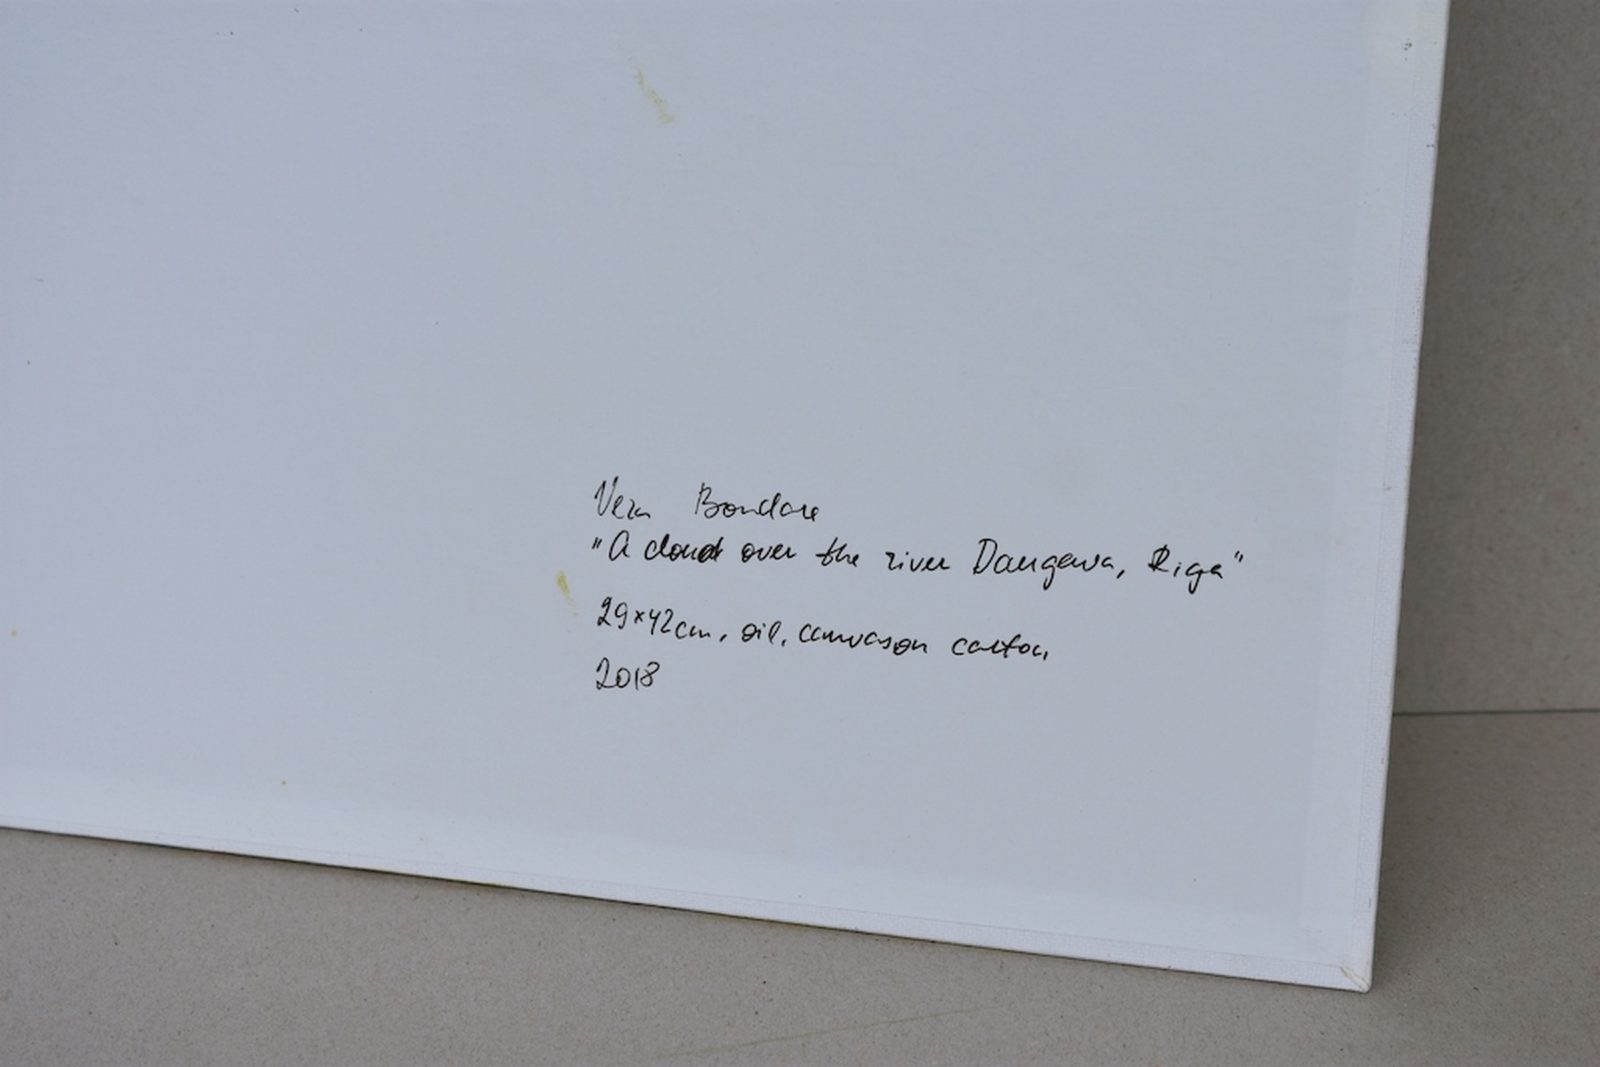 Vera Bondare
"A cloud over the river Daugava, Riga"
29×42cm, oil, canvas on carton
2018